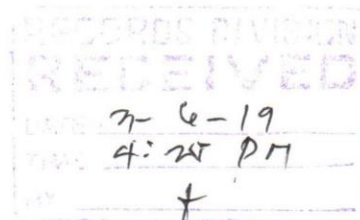 RECORDS DIVISION
RECEIVED
DATE: 3-6-19
TIME: 4:25 PM
BY: